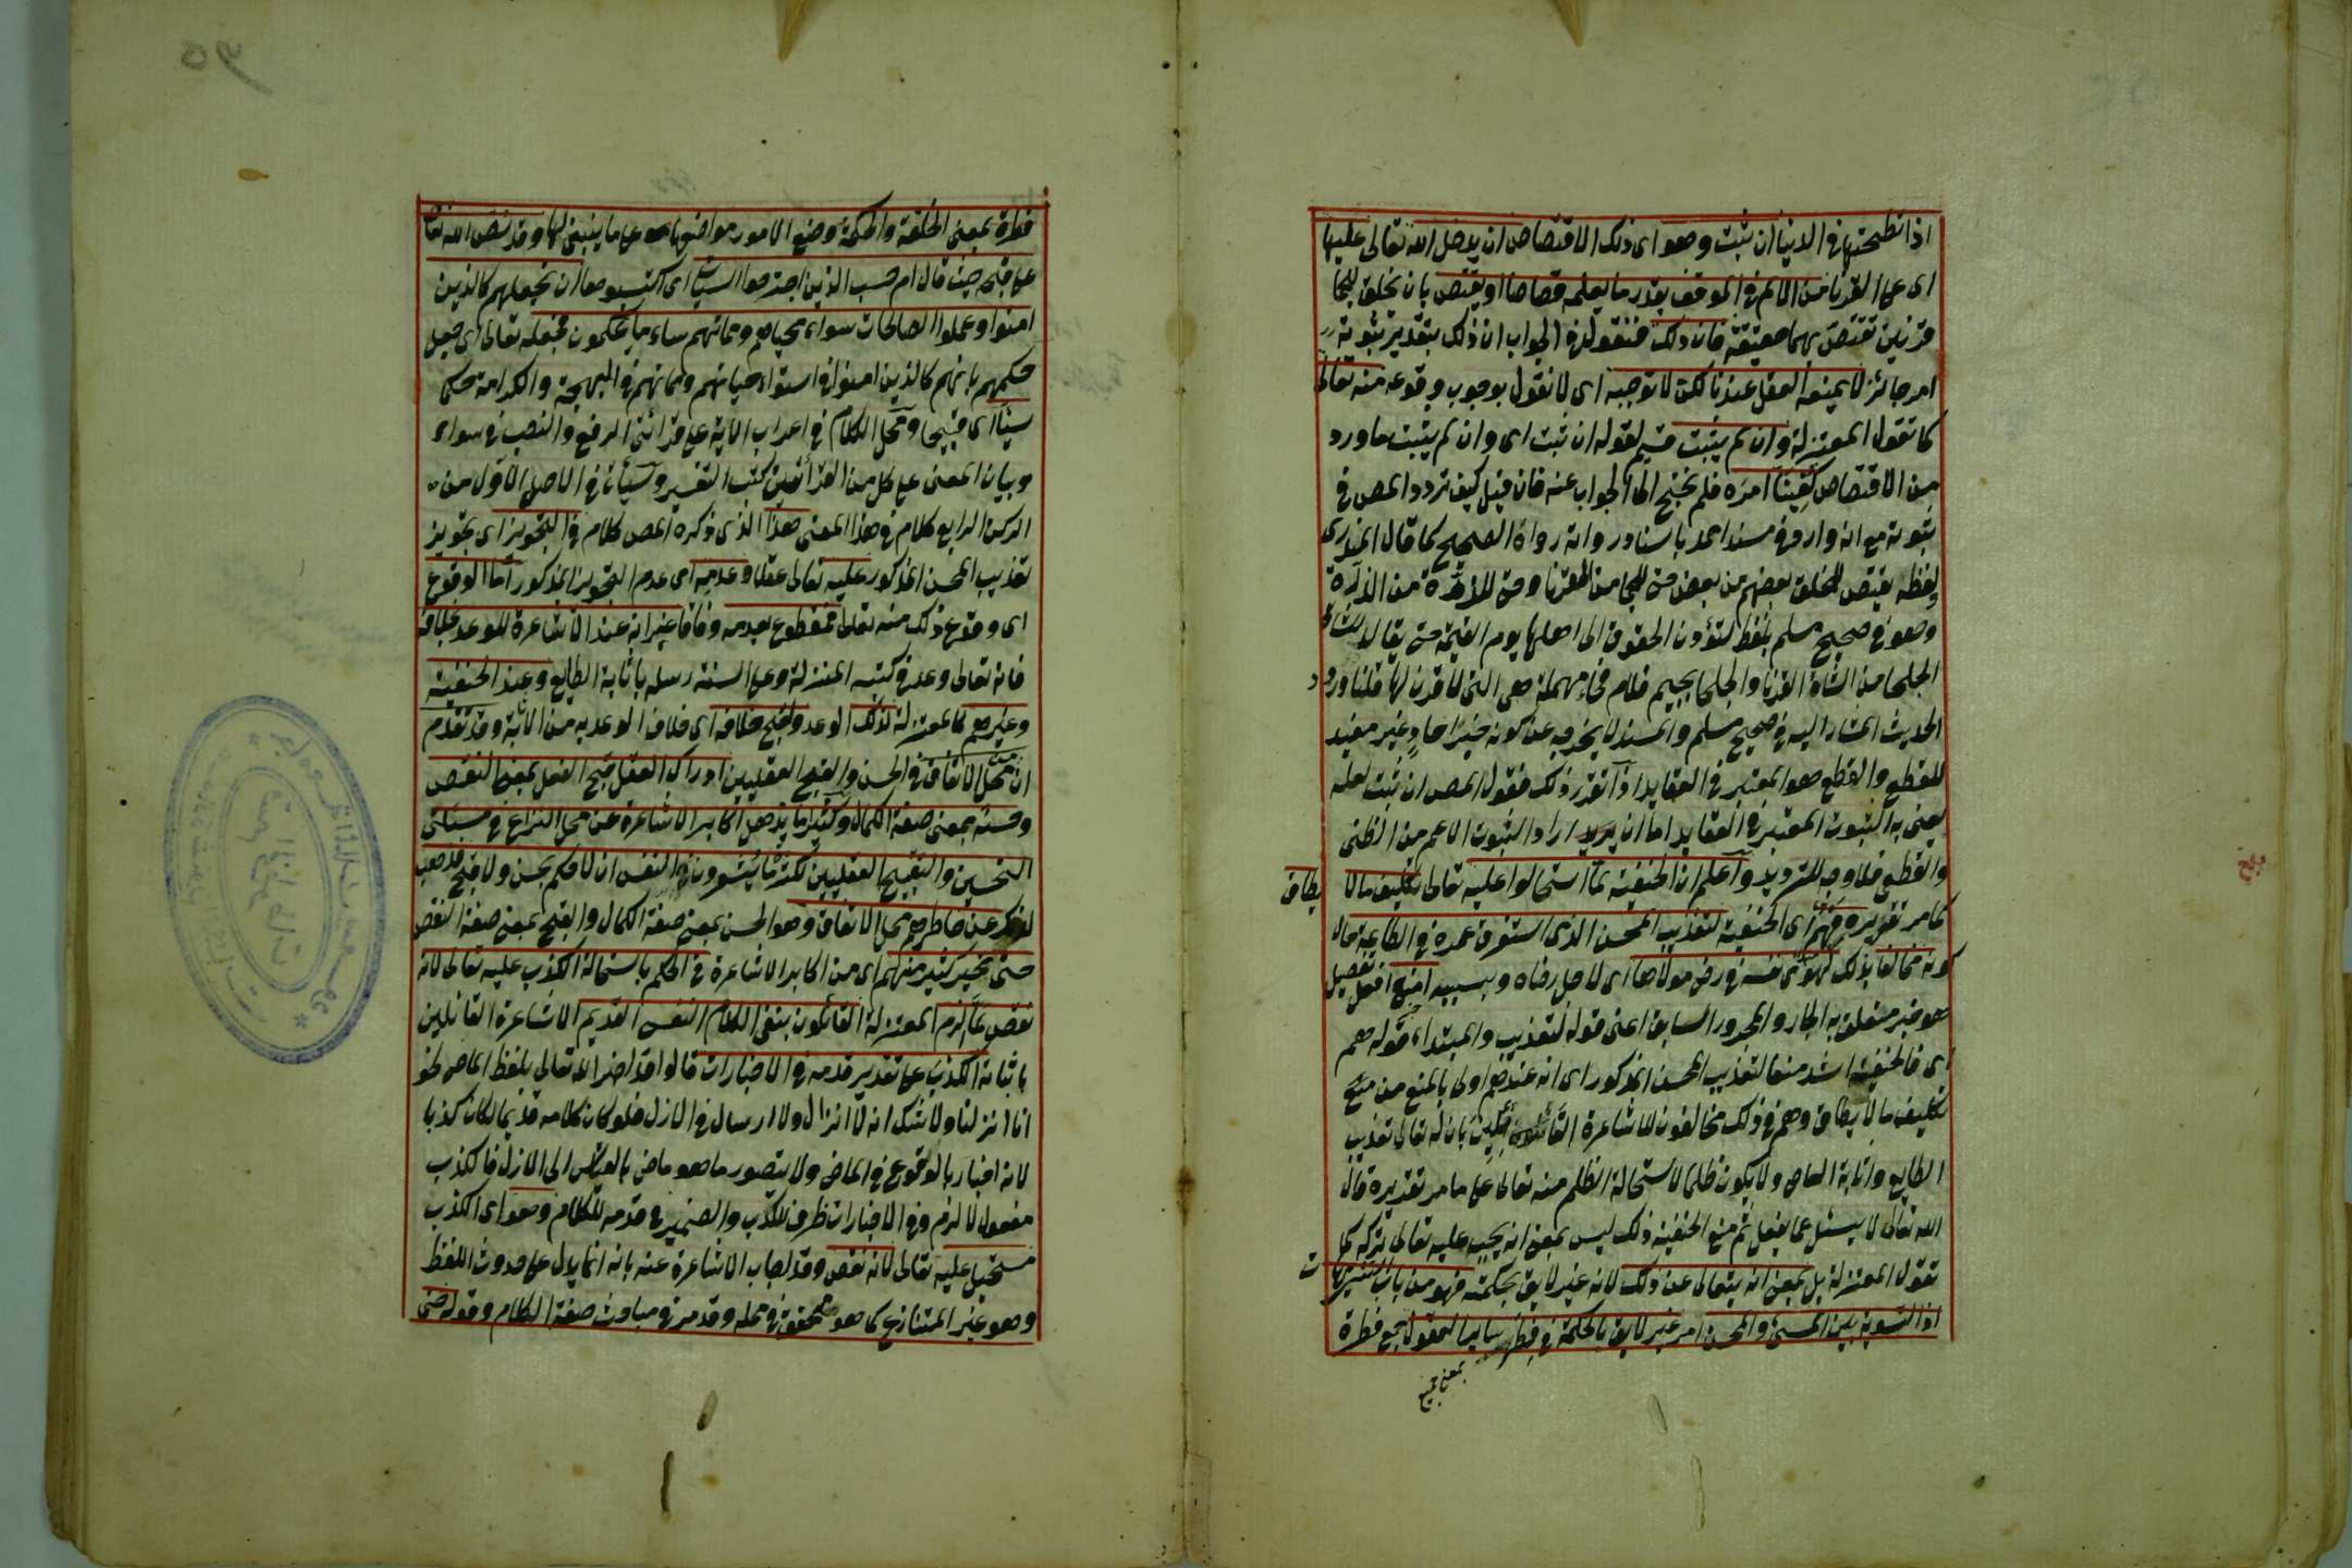 اذا نطحتها في الدنيا ان ثبت وهو اى ذلك الاقتصاص ان يدخل الله تعالى عليها
اى على القرنا من الالم في الموقف بقدر ما يعلمه قصاصا او يقتص بان يخلق للجما
قرنين تقتص بهما حقيقة فان ذلك فنقول في الجواب ان ذلك بتقدير ثبوته
امر جائز لا يمنعه العقل عندنا لكن لا نوجبه اى لا نقول بوجوب وقوعه منه تعالى
كما تقول المعتزلة وان لم يثبت قسيم لقوله ان ثبت اى وان لم يثبت ما ورد
من الاقتصاص كفينا امره فلم نحتج الى الجواب عنه فان قيل كيف تردد المص في
ثبوته مع انه وارد في مسند احمد باسناد رواته رواة الصحيح كما قال المنذرى
ولفظه يقتص للخلق بعضهم من بعض حتى للجما من القرنا وحتى للذرة من الذرة
وهو في صحيح مسلم بلفظ لتؤدن الحقوق الى اهلها يوم القيمة حتى يقاد للشاة
الجلحا من الشاة القرنا والجلحا بجيم فلام فحاء مهملة هى التى لا قرن لها قلنا ورود
الحديث المشار اليه في صحيح مسلم والمسند لا يخرجه عن كونه خبر احاد غير مفيد
للقطع والقطع هو المعتبر في العقايد اذا تقرر ذلك فقول المص ان ثبت لعله
يعنى به الثبوت المعتبر في العقايد اما ان اراد الثبوت الاعم من الظنى
والقطعى فلا وجه للترديد واعلم ان الحنفية لما استحالوا عليه تعالى تكليف ما لا يطاق
كما مر تقريره فهم اى الحنفية لتعذيب المحسن الذى استغرق عمره في الطاعة حال
كونه مخالفا بذلك لهوى نفسه في رضى مولاها اى لاجل رضاه وبسببه امنع افعل تفضيل
هو خبر متعلق به الجار والمجرور السابق اعنى قوله لتعذيب والمبتداء قوله هم
اى فالحنفية اشد منعا لتعذيب المحسن المذكور اى انه عندهم اولى بالمنع من منع
تكليف ما لا يطاق وهم في ذلك مخالفون للاشاعرة القائلين بان له تعالى تعذيب
الطايع واثابة العاصى ولا يكون ظلما لاستحالة الظلم منه تعالى على ما مر تقديره قال
الله تعالى لا يسئل عما يفعل ثم منع الحنفية ذلك ليس بمعنى انه يجب عليه تعالى تركه كما
تقول المعتزلة بل بمعنى انه يتعالى عن ذلك لانه غير لايق بحكمته فهو من باب التنزيهات
اذ التسوية بين المسئ والمحسن امر غير لايق بالحكمة في فطر ساير العقول جمع فطرة
بمعنى جميع
فطرة بمعنى الخلقة والحكمة وضع الامور مواضعها على ما ينبغى لها وقد نص الله تعالى
على قبحه حيث قال ام حسب الذين اجترحوا السيئات اى اكتسبوها ان نجعلهم كالذين
امنوا وعملوا الصالحات سواء محياهم ومماتهم ساء ما يحكمون فجعله تعالى اى جعل
حكمهم بانهم كالذين امنوا في استواء حياتهم ومماتهم في البهجة والكرامة حكما
سيئا اى قبيحا ومحل الكلام في اعراب الاية على قرائتى الرفع والنصب في سواء
وبيان المعنى على كل من القرأتين كتب التفسير وسيأتى في الاصل الاول من
الركن الرابع كلام في هذا المعنى هذا الذى ذكره المص كلام في التجويز اى تجويز
تعذيب المحسن المذكور عليه تعالى عقلا وعدمه اى عدم التجويز المذكور اما الوقوع
اى وقوع ذلك منه تعالى فمقطوع بعدمه وفاقا غير انه عند الاشاعرة للوعد بخلافه
فانه تعالى وعد في كتبه المنزلة وعلى السنة رسله باثابة الطايع وعند الحنفية
وغيرهم كالمعتزلة لذلك الوعد ولقبح خلافه اى خلاف الوعد به من الاثابة وقد تقدم
ان محل الاتفاق في الحسن والقبح العقليين ادراك العقل قبح الفعل بمعنى النقص
وحسنه بمعنى صفة الكمال وكثيرا ما يذهل اكابر الاشاعرة عن محل النزاع في مسئلتى
التحسين والتقبيح العقليين لكثرة ما يشعرون النفس ان لا حكم بحسن ولا قبح فذهب
لذلك عن خاطرهم محل الاتفاق وهو الحسن بمعنى صفة الكمال والقبح بمعنى صفة النقص
حتى تحير كثير منهم اى من اكابر الاشاعرة في الحكم باستحالة الكذب عليه تعالى لانه
نقص لما الزم المعتزلة القائلون بنفى الكلام النفسى القديم الاشاعرة القائلين
باثباته الكذب على تقدير قدمه في الاخبارات قالوا قد اخبر الله تعالى بلفظ الماضى نحو
انا انزلنا ولا شك انه لا انزال ولا ارسال في الازل فلو كان كلامه قديما لكان كذبا
لانه اخبار بالوقوع في الماضى ولا يتصور ما هو ماض بالقياس الى الازل فالكذب
مفعول لالزم وفي الاخبارات ظرف للكذب والضمير في قدمه للكلام وهو اى الكذب
مستحيل عليه تعالى لانه نقص وقد اجاب الاشاعرة عنه بانه انما يدل على حدوث اللفظ
وهو غير المتنازع كما هو محقق في محله وقد مر في مباحث صفة الكلام وقوله حتى